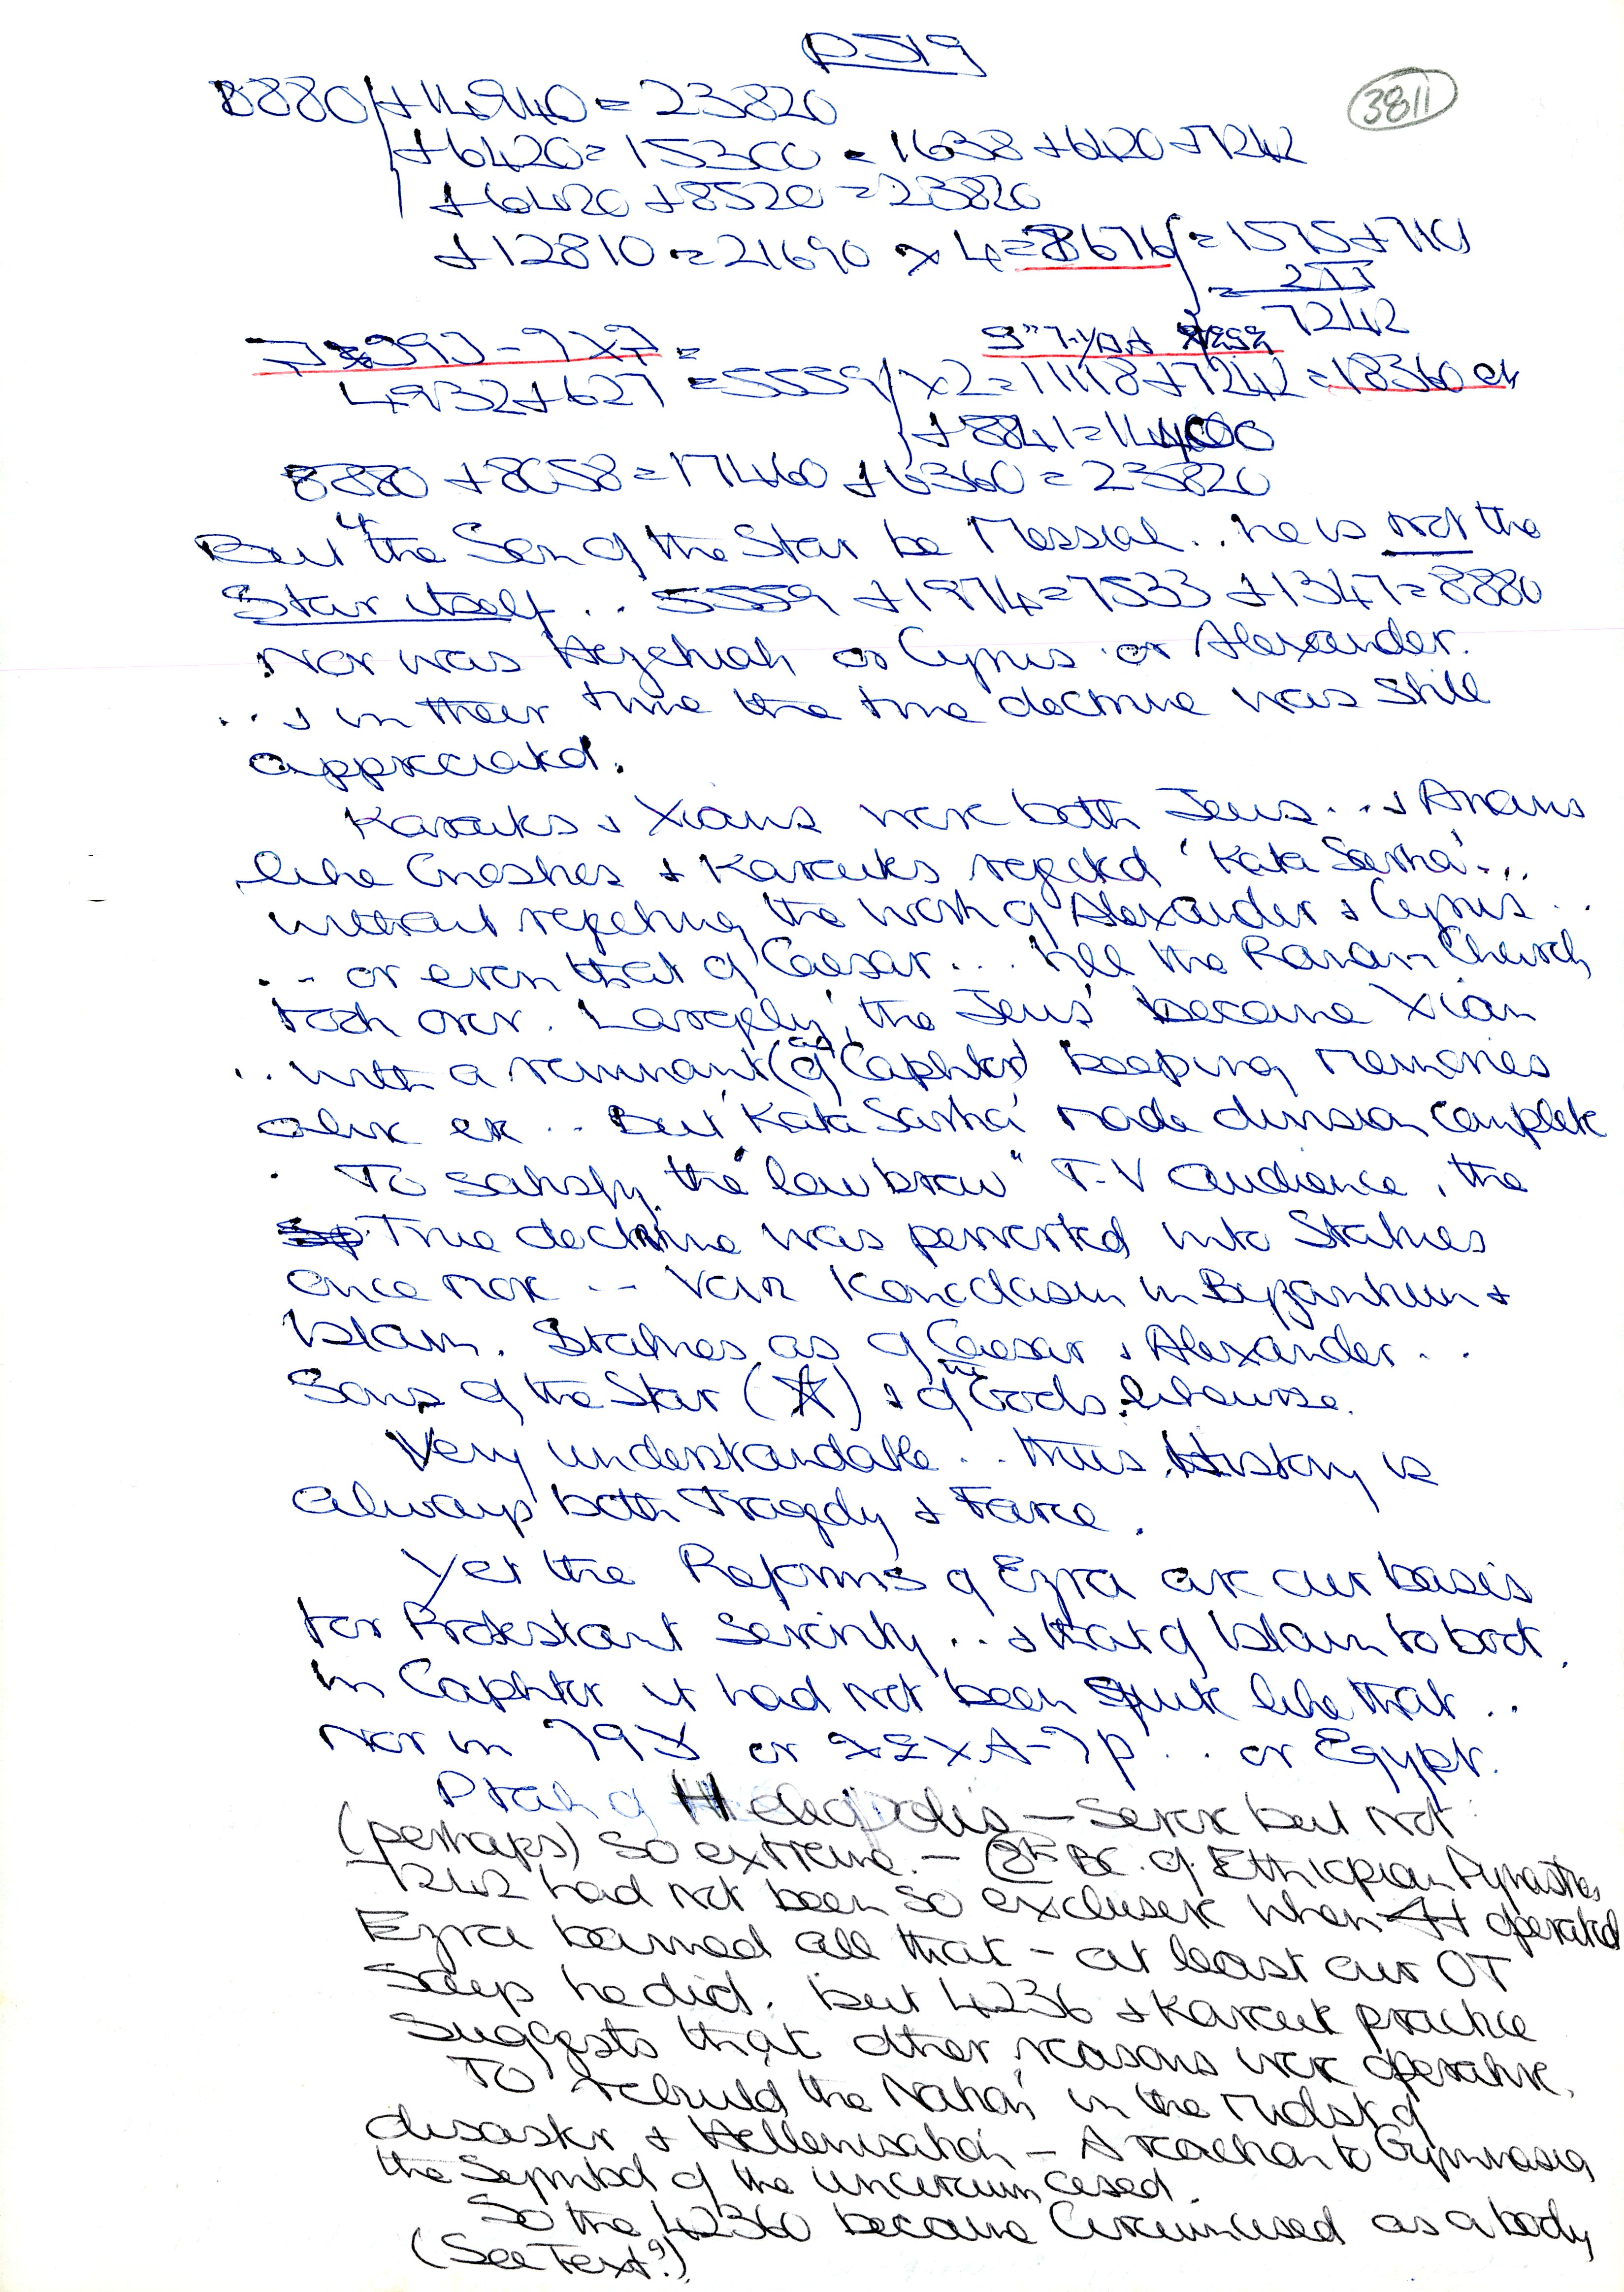 P519
3811
8880 + 14940 = 23820
+ 6420 = 15300 = 1638 + 6420 + 7242
+ 6420 + 8520 = 23820
+ 12810 = 21690 x 4 = 8676 = 1575 + 7101
7242
4932 + 627 = 5559 x 2 = 11118 + 7242 = 18360
+ 8841 = 14400
8880 + 8058 = 17460 + 6360 = 23820
But if the Son of the Star be Messiah .. he is not the
Star itself .. 5559 + 1974 = 7533 + 1347 = 8880
Nor was Hezekiah or Cyrus or Alexander.
.. & in their time the true doctrine was still
appreciated.
Karaites & Xians were both Jews .. & Arians
like Gnostics & Karaites rejected 'Kata Sarka' ...
without rejecting the work of Alexander & Cyrus ..
.. or even that of Caesar ... till the Roman Church
took over. Largely 'the Jews' became Xian
.. with a remnant (as of Caphtor) keeping memories
alive .. But 'Kata Sarka' made division complete
. To satisfy the "low brow" T-V audience, the
True doctrine was perverted into Statues
once more .. Vain Iconoclasm in Byzantium &
Islam. Statues as of Caesar & Alexander ..
Sons of the Star (☆) & of the Gods likewise.
Very understandable .. thus History is
always both Tragedy & Farce.
Yet the Reforms of Ezra are our basis
for Protestant Severity .. & that of Islam to boot.
In Caphtor it had not been quite like that ..
Nor in or .. or Egypt.
Ptah of Heliopolis — Severe but not
(perhaps) so extreme. — (8th BC. of Ethiopian Dynasties
7242 had not been so exclusive when operated
Ezra banned all that - at least our OT
says he did. But 4236 & Karaite practice
suggests that other reasons were operative.
To 'rebuild the Nation' in the midst of
disaster & Hellenisation - A reaction to Gymnasia
the Symbol of the uncircumcised.
So the 42360 became Circumcised as a body
(See Text?)